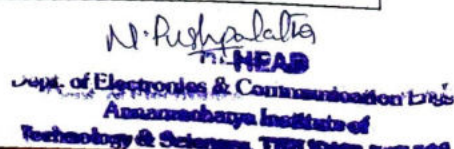 N. Pushpalatha
HEAD
Dept. of Electronics & Communication Engg
Annamacharya Institute of
Technology & Sciences,